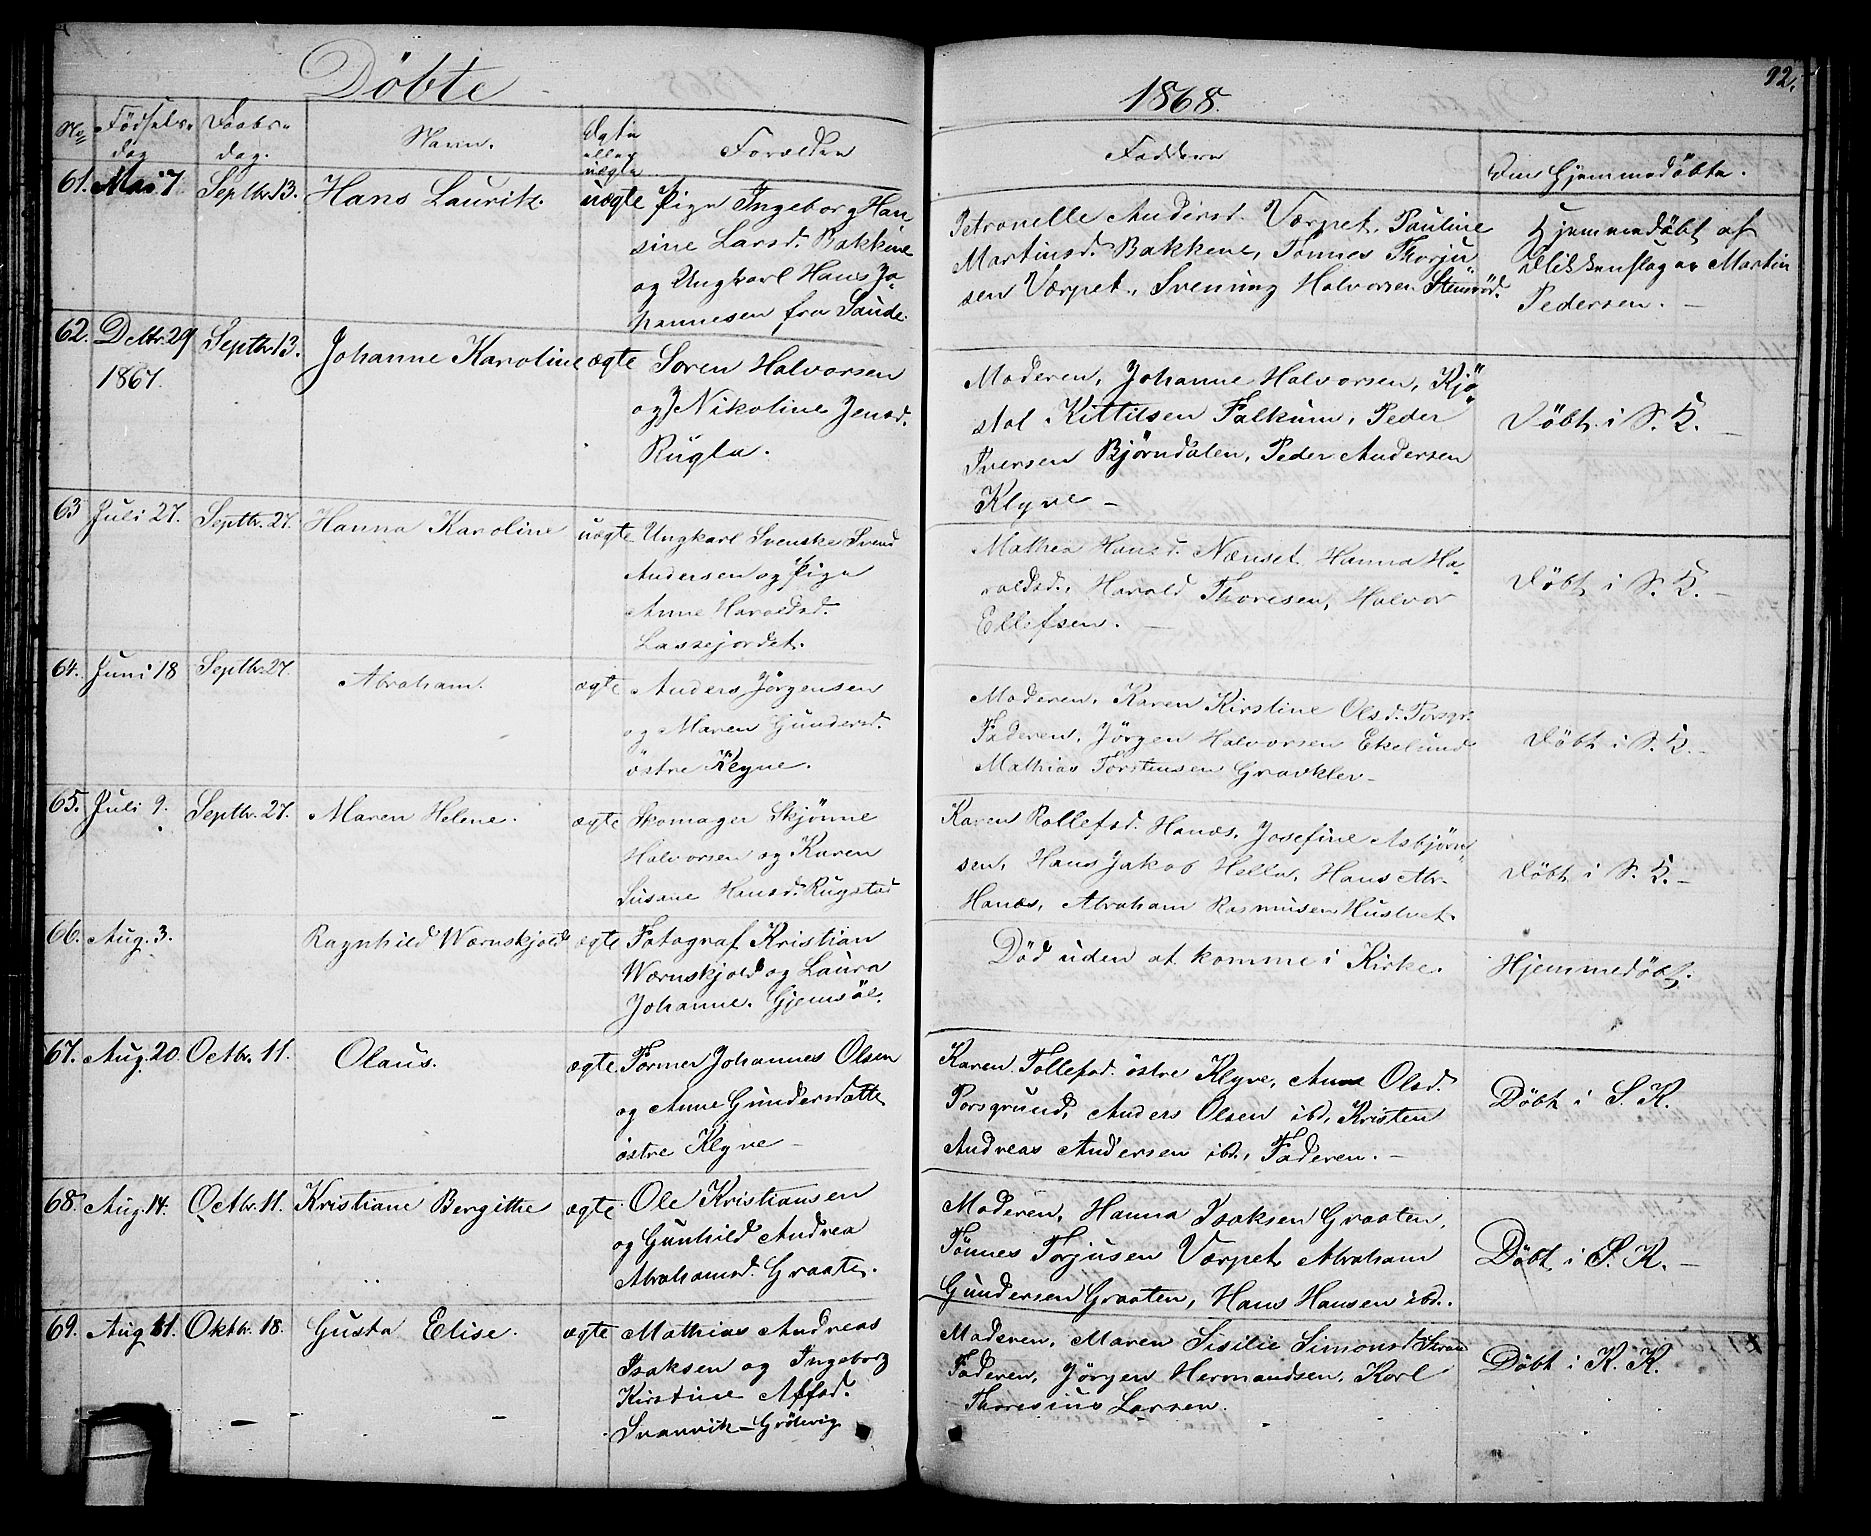 Döbte
1868.
92.
No
Födsels-
dag
Daabs-
dag.
Navn.
Ægte
eller
uægte
Forældre
Faddere
Om Hjemmedöbte.
61. Mai 7 Septbr. 13. Hans Laurits. uægte Pige Ingeborg Han
sine Larsd. Bakkene
og Ungkarl Hans Jo-
hannesen fra Saude.
Petronelle Andersd. Værpet, Pauline
Martinsd. Bakkene, Tönnes Thorju
sen Værpet, Svenung Halvorsen Stensröd.
Hjemmedöbt af
Martin
Pedersen. -
62. Dcbr. 29 Septbr. 13. Johanne Karoline ægte Soren Halvorsen
1867.
og Nikoline Jensd.
Rugla.
Moderen, Johanne Halvorsen, Kjö-
stol Kittilsen Falkum, Peder
Iversen Björndalen, Peder Andersen
Klyve -
Döbt i S. K. -
63 Juli 27. Septbr. 27. Hanna Karoline uægte Ungkarl Svenske Svend
Andersen og Pige
Anne Haroldsd.
Lassejordet.
Mathea Hansd. Nænset, Hanna Ha-
roldsd., Harold Thoresen, Halvor
Ellefsen. -
Döbt i S. K. -
64. Juni 18 Septbr. 27. Abraham. ægte Anders Jörgensen
og Maren Gundersd.
östre Klyve.
Moderen, Karen Kirstine Olsd. Porsgr.
Faderen, Jörgen Halvorsen Ekelund
Mathias Torstensen Gravkler-
Döbt i S. K. -
65. Juli 9. Septbr. 27. Maren Helene. ægte Skomager Skjönne
Halvorsen og Karen
Susane Hansd. Rugstad
Karen Rollefsd. Hanæs, Josefine Asbjörn-
sen, Hans Jakob Hella, Hans Abr.
Hanæs, Abraham Rasmusen Hustvet.
Döbt i S. K. -
66. Aug. 3. Ragnhild Wærnskjold ægte Fotograf Kristian
Wærnskjold og Laura
Johanne. Gjemsöe.
Död uden at komme i Kirke.
Hjemmedöbt.
67. Aug. 20. Octbr. 11. Olaus. ægte Former Johannes Olsen
og Anne Gundersdatte
östre Klyve -
Karen Tollefsd. östre Klyve, Anne Olsd.
Porsgrund, Anders Olsen ibd., Kristen
Andreas Andersen ibd., Faderen. -
Döbt i S. K.
68. Aug. 14. Octbr. 11. Kristiane Bergithe ægte Ole Kristiansen
og Gunhild Andrea
Abrahamsd. Graaten.
Moderen, Hanna Isaksen Graaten,
Tönnes Torjusen Værpet Abraham
Gundersen Graaten, Hans Hansen ibd.
Döbt i S. K. -
69. Aug 11. Oktbr. 18. Gusta Elise. ægte Mathias Andreas
Isaksen og Ingeborg
Kirstine
Svanvik - Grötvig
Moderen, Maren Sisilie Simonsd.
Faderen, Jörgen Hermandsen, Karl
Thoresius Larsen.
Döbt i K. K.